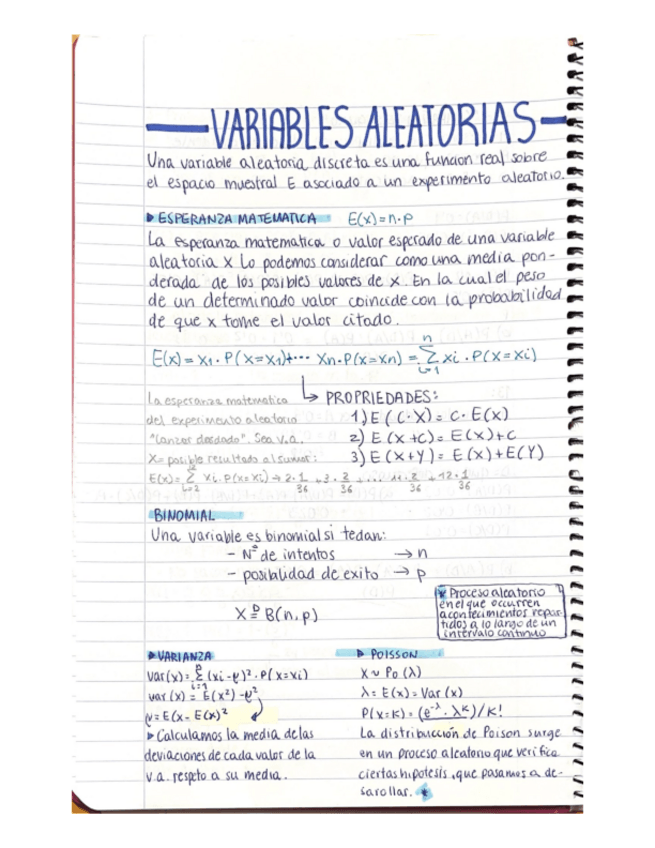 VARIABLES ALEATORIAS
Una variable aleatoria discreta es una funcion real sobre
el espacio muestral E asociado a un experimento aleatorio.
▶ ESPERANZA MATEMATICA E(x)=n·p
La esperanza matematica o valor esperado de una variable
aleatoria x Lo podemos considerar como una media pon-
derada de los posibles valores de x. En la cual el peso
de un determinado valor coincide con la probabilidad
de que x tome el valor citado.
E(x)=x1·P(x=x1)+··· xn·P(x=xn) = n∑i=1 xi·P(x=xi)
↳ PROPRIEDADES:
1) E(C·X)=C·E(x)
2) E(x+c)=E(x)+c
3) E(x+y)=E(x)+E(Y)
La esperanza matematica
del experimento aleatorio
"Lanzar dosdado". Sea v.a.
X=posible resultado al sumar:
E(x)= 12∑i=2 xi·P(x=xi) → 2·1/36 +3·2/36 +... 11·2/36 +12·1/36
BINOMIAL
Una variable es binomial si tedan:
- Nº de intentos → n
- posibilidad de exito → p
X ≡ B(n,p)
* Proceso aleatorio
en el que occurren
acontecimientos repar-
tidos a lo largo de un
intervalo continuo
▶ VARIANZA
Var(x)= ∑i=1 (xi-μ)²·P(x=xi)
var(x)= E(x²)-μ²
μ=E(x-E(x)²
▶ Calculamos la media de las
deviaciones de cada valor de la
v.a. respeto a su media.
▶ POISSON
X ~ Po (λ)
λ=E(x)=Var(x)
P(x=K)=(e^-λ·λ^K)/K!
La distribucción de Poison surge
en un proceso aleatorio que verifica
ciertas hipotesis, que pasamos a de-
sarollar. *